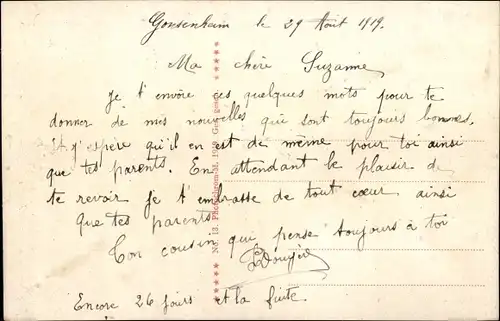 Gonsenheim le 29 Août 1919.
Ma chère Suzanne
Je t'envoie ces quelques mots pour te
donner de mes nouvelles qui sont toujours bonnes,
et j'espère qu'il en est de même pour toi ainsi
que tes parents. En attendant le plaisir de
te revoir je t'embrasse de tout cœur ainsi
que tes parents
Ton cousin qui pense toujours à toi
Encore 26 jours et la fuite
No. 13.